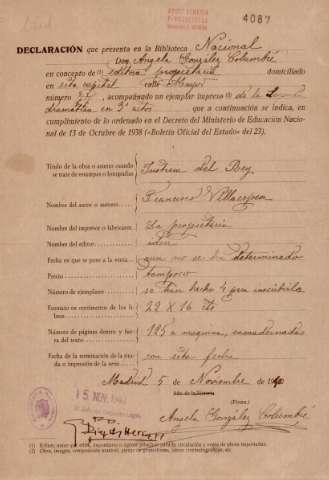 4087
DECLARACIÓN que presenta en la Biblioteca Nacional
Don Angela González Colombié
en concepto de (1) editora propietaria domiciliado
en esta capital calle
número 27, acompañando un ejemplar impreso de la
dramática en 3 actos que a continuación se indica, en
cumplimiento de lo ordenado en el Decreto del Ministerio de Educación Nacio-
nal de 13 de Octubre de 1938 («Boletín Oficial del Estado» del 23).
Título de la obra o asunto cuando
se trate de estampas o fotografías del Rey
Nombre del autor o autores Francisco Villaespesa
Nombre del impresor o fabricante La propietaria
Nombre del editor idem
Fecha en que se pone a la venta aun no se ha determinado
Precio tampoco
Número de ejemplares se han hecho 4 para inscribirla
Formato en centímetros de los li-
bros 22 X 16 cts
Número de páginas dentro y fue-
ra del texto 125 a maquina, encuadernadas
Fecha de la terminación de la tira-
da o impresión de la serie con esta fecha
Madrid 5 de Noviembre de 1940
(Firma)
15 NOV. 1940
Angela González Colombié
(1) Editor, autor que edita, impresor
(2) Obra, imagen, composición musical,